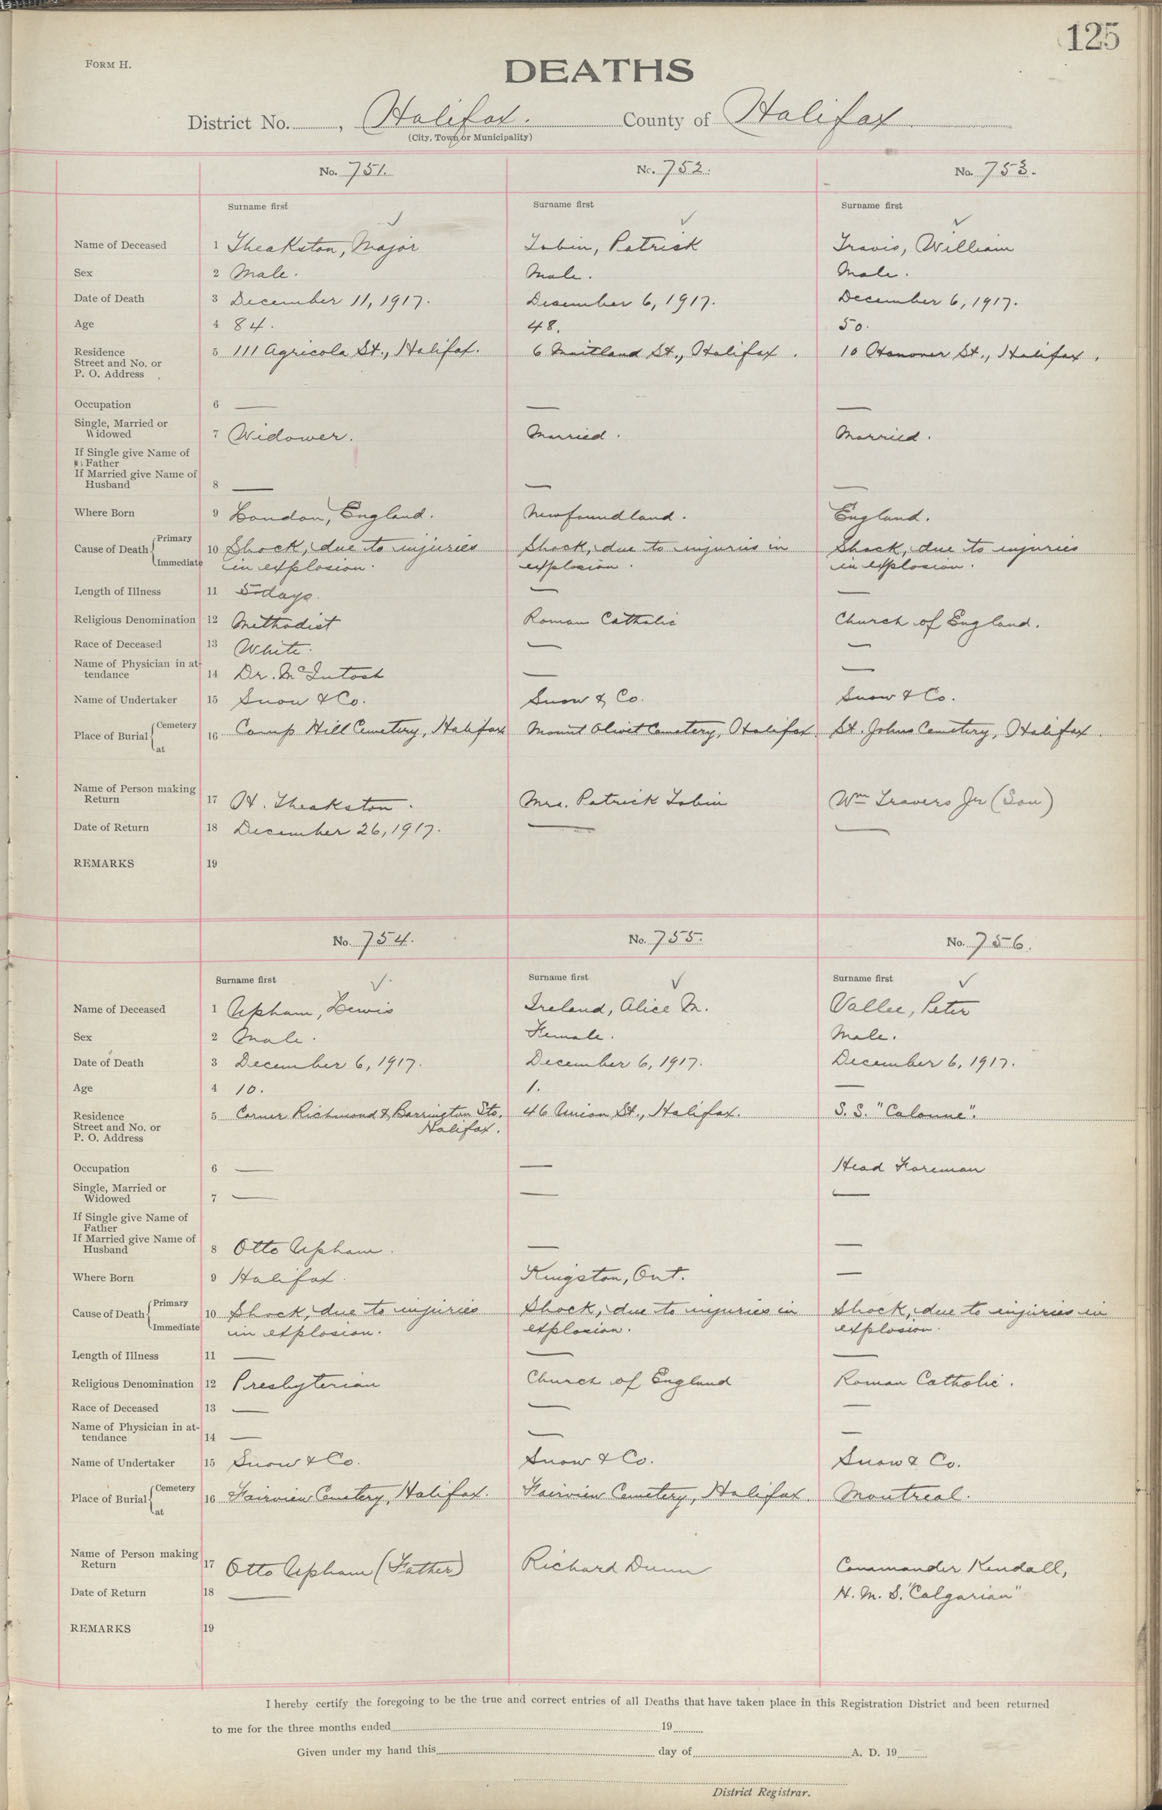 125
FORM H.
DEATHS
District No. , Halifax. County of Halifax
(City, Town or Municipality)
No. 751. No. 752. No. 753.
Surname first Surname first Surname first
Name of Deceased 1 Theakston, Major Tobin, Patrick Travis, William
Sex 2 Male. Male. Male.
Date of Death 3 December 11, 1917. December 6, 1917. December 6, 1917.
Age 4 84. 48. 50.
Residence 5 111 Agricola St., Halifax. 6 Maitland St., Halifax. 10 Hanover St., Halifax.
Street and No. or
P. O. Address
Occupation 6 — — —
Single, Married or
Widowed 7 Widower. Married. Married.
If Single give Name of
Father
If Married give Name of
Husband 8 — — —
Where Born 9 London, England. Newfoundland. England.
Primary
Cause of Death 10 Shock, due to injuries Shock, due to injuries in Shock, due to injuries
Immediate in explosion. explosion. in explosion.
Length of Illness 11 5 days. — —
Religious Denomination 12 Methodist Roman Catholic Church of England.
Race of Deceased 13 White. — —
Name of Physician in at-
tendance 14 Dr. McIntosh — —
Name of Undertaker 15 Snow & Co. Snow & Co. Snow & Co.
Cemetery
Place of Burial 16 Camp Hill Cemetery, Halifax Mount Olivet Cemetery, Halifax. St. Johns Cemetery, Halifax.
at
Name of Person making
Return 17 H. Theakston. Mrs. Patrick Tobin Wm Travers Jr (Son)
Date of Return 18 December 26, 1917. — —
REMARKS 19
No. 754. No. 755. No. 756.
Surname first Surname first Surname first
Name of Deceased 1 Upham, Lewis Ireland, Alice M. Vallee, Peter
Sex 2 Male. Female. Male.
Date of Death 3 December 6, 1917. December 6, 1917. December 6, 1917.
Age 4 10. 1. —
Residence 5 Corner Richmond & Barrington Sts. 46 Union St., Halifax. S. S. "Calonne".
Street and No. or Halifax.
P. O. Address
Occupation 6 — — Head Foreman
Single, Married or
Widowed 7 — — —
If Single give Name of
Father
If Married give Name of
Husband 8 Otto Upham. — —
Where Born 9 Halifax. Kingston, Ont. —
Primary
Cause of Death 10 Shock, due to injuries Shock, due to injuries in Shock, due to injuries in
Immediate in explosion. explosion. explosion.
Length of Illness 11 — — —
Religious Denomination 12 Presbyterian Church of England Roman Catholic.
Race of Deceased 13 — — —
Name of Physician in at-
tendance 14 — — —
Name of Undertaker 15 Snow & Co. Snow & Co. Snow & Co.
Cemetery
Place of Burial 16 Fairview Cemetery, Halifax. Fairview Cemetery, Halifax. Montreal.
at
Name of Person making
Return 17 Otto Upham (Father) Richard Dunn Commander Kendall,
Date of Return 18 — H. M. S. "Calgarian"
REMARKS 19
I hereby certify the foregoing to be the true and correct entries of all Deaths that have taken place in this Registration District and been returned
to me for the three months ended 19
Given under my hand this day of A. D. 19
District Registrar.